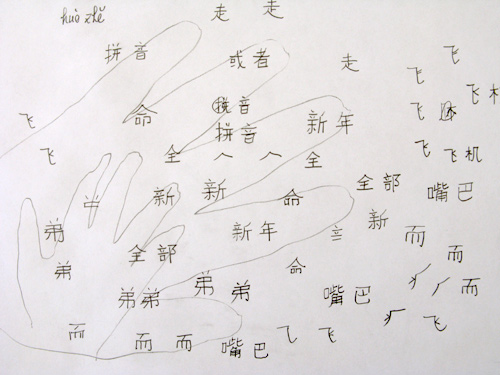 huò zhě 走 走
拼音 或者 走 飞
飞 飞机
飞 命 音 飞
拼音 新年
飞 全 人 人 全 飞 飞机
新 新 命 全部 嘴巴
弟 新年 新 而
弟 全部 命 而
弟弟 弟 弟 嘴巴 而
而 而 而 嘴巴 飞 飞